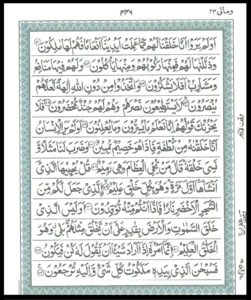 ومالى ٢٣
اَوَلَمْ يَرَوْا اَنَّا خَلَقْنَا لَهُمْ مِّمَّا عَمِلَتْ اَيْدِيْنَا اَنْعَامًا فَهُمْ لَهَا مٰلِكُوْنَ
وَذَلَّلْنٰهَا لَهُمْ فَمِنْهَا رَكُوْبُهُمْ وَمِنْهَا يَاْكُلُوْنَ وَلَهُمْ فِيْهَا مَنَافِعُ
وَمَشَارِبُ اَفَلَا يَشْكُرُوْنَ وَاتَّخَذُوْا مِنْ دُوْنِ اللّٰهِ اٰلِهَةً لَّعَلَّهُمْ
يُنْصَرُوْنَ لَا يَسْتَطِيْعُوْنَ نَصْرَهُمْ وَهُمْ لَهُمْ جُنْدٌ مُّحْضَرُوْنَ فَلَا
يَحْزُنْكَ قَوْلُهُمْ اِنَّا نَعْلَمُ مَا يُسِرُّوْنَ وَمَا يُعْلِنُوْنَ اَوَلَمْ يَرَ الْاِنْسَانُ
اَنَّا خَلَقْنٰهُ مِنْ نُّطْفَةٍ فَاِذَا هُوَ خَصِيْمٌ مُّبِيْنٌ وَضَرَبَ لَنَا مَثَلًا وَّ
نَسِيَ خَلْقَهٗ قَالَ مَنْ يُّحْيِ الْعِظَامَ وَهِيَ رَمِيْمٌ قُلْ يُحْيِيْهَا الَّذِيْ
اَنْشَاَهَا اَوَّلَ مَرَّةٍ وَهُوَ بِكُلِّ خَلْقٍ عَلِيْمٌ الَّذِيْ جَعَلَ لَكُمْ مِّنَ
الشَّجَرِ الْاَخْضَرِ نَارًا فَاِذَا اَنْتُمْ مِّنْهُ تُوْقِدُوْنَ اَوَلَيْسَ الَّذِيْ
خَلَقَ السَّمٰوٰتِ وَالْاَرْضَ بِقٰدِرٍ عَلٰى اَنْ يَّخْلُقَ مِثْلَهُمْ بَلٰى وَهُوَ
الْخَلّٰقُ الْعَلِيْمُ اِنَّمَا اَمْرُهٗ اِذَا اَرَادَ شَيْئًا اَنْ يَّقُوْلَ لَهٗ كُنْ فَيَكُوْنُ
فَسُبْحٰنَ الَّذِيْ بِيَدِهٖ مَلَكُوْتُ كُلِّ شَيْءٍ وَّاِلَيْهِ تُرْجَعُوْنَ